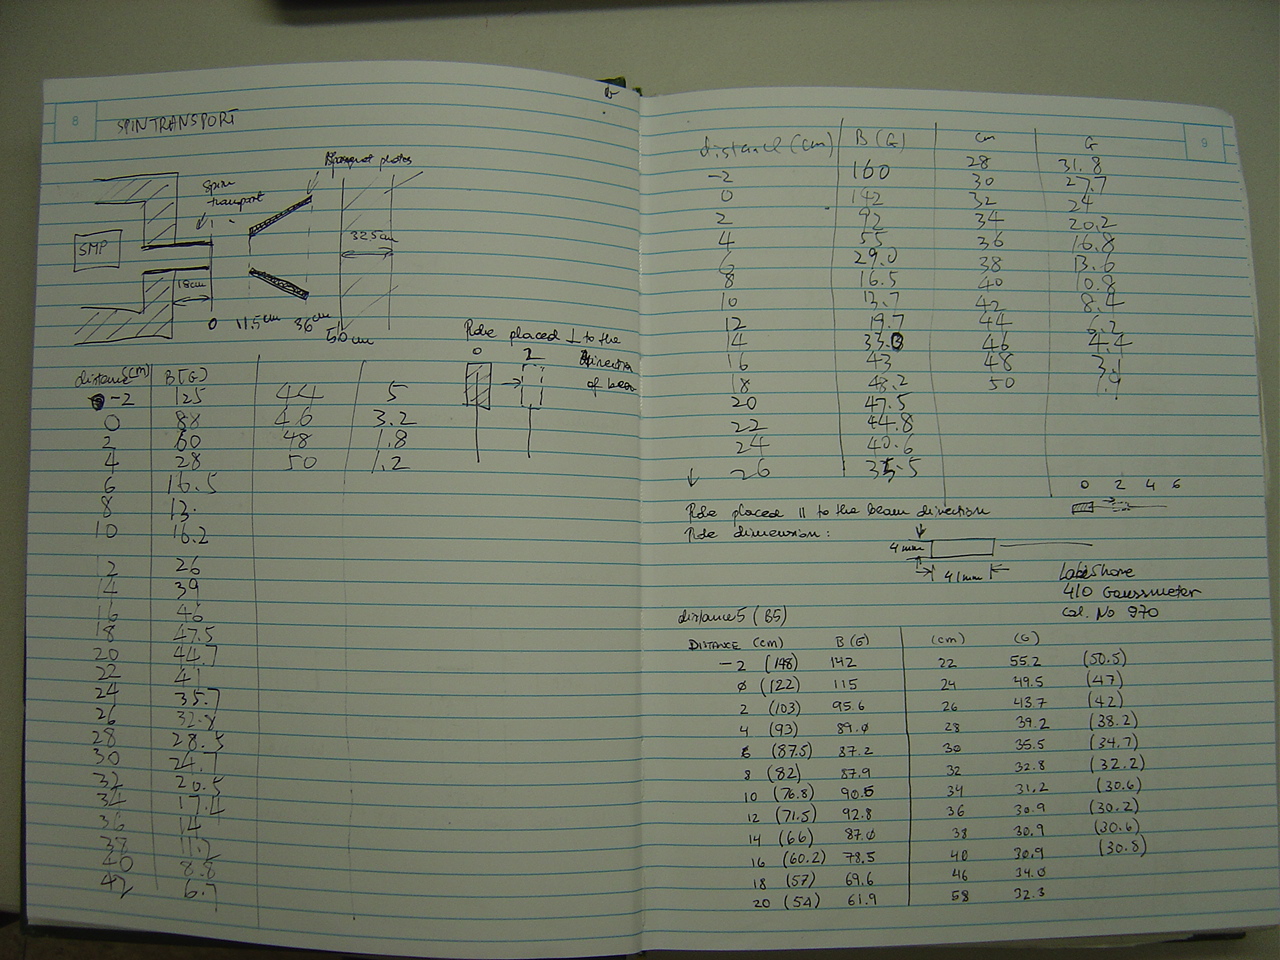 8
SPIN TRANSPORT
photos
Spin
transport
32.5cm
SMP
18cm
0 11.5cm 36cm 50cm
placed ⊥ to the
direction
of beam
0 2
distance(cm) B(G)
-2 125 44 5
0 88 46 3.2
2 60 48 1.8
4 28 50 1.2
6 16.5
8 13.
10 16.2
12 26
14 39
16 46
18 47.5
20 44.7
22 41
24 35.7
26 32.8
28 28.5
30 24.7
32 20.5
34 17.4
36 14
38 11.2
40 8.8
42 6.7
9
distance (cm) B (G) cm G
-2 160 28 31.8
0 142 30 27.7
2 92 32 24
4 55 34 20.2
6 29.0 36 16.8
8 16.5 38 13.6
10 13.7 40 10.8
12 19.7 42 8.4
14 33.0 44 6.2
16 43 46 4.4
18 48.2 48 3.1
20 47.5 50
22 44.8
24 40.6
26 35.5
0 2 4 6
placed || to the beam direction
dimension:
4mm
41mm
LakeShore
410 Gaussmeter
Cal. No 970
distance5 (B5)
DISTANCE (cm) B (G) (cm) (G)
-2 (148) 142 22 55.2 (50.5)
0 (122) 115 24 49.5 (47)
2 (103) 95.6 26 43.7 (42)
4 (93) 89.0 28 39.2 (38.2)
6 (87.5) 87.2 30 35.5 (34.7)
8 (82) 87.9 32 32.8 (32.2)
10 (76.8) 90.5 34 31.2 (30.6)
12 (71.5) 92.8 36 30.9 (30.2)
14 (66) 87.0 38 30.9 (30.6)
16 (60.2) 78.5 40 30.9 (30.8)
18 (57) 69.6 46 34.0
20 (54) 61.9 58 32.3